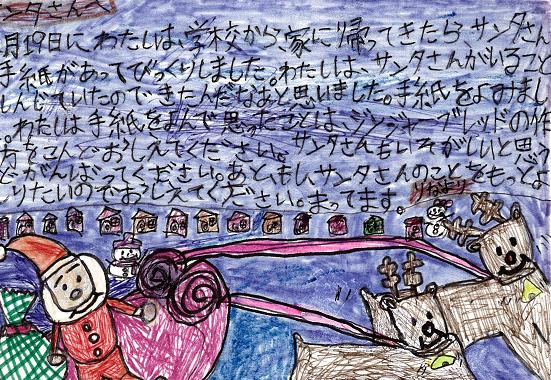 ンタさんへ
月19日に、わたしは、学校から、家に帰ってきたら、サンタさん
手紙があってびっくりしました。わたしは、サンタさんがいること
しんじていたのできたんだなあと思いました。手紙をよみまし
。わたしは手紙をよんで思ったことは、ジンジャーブレッドの作
方をこんどおしえてください。サンタさんもいそがしいと思う
どがんばってください。あと、もし、サンタさんのことをもっとよ
りたいのでおしえてください。まってます。
りなより